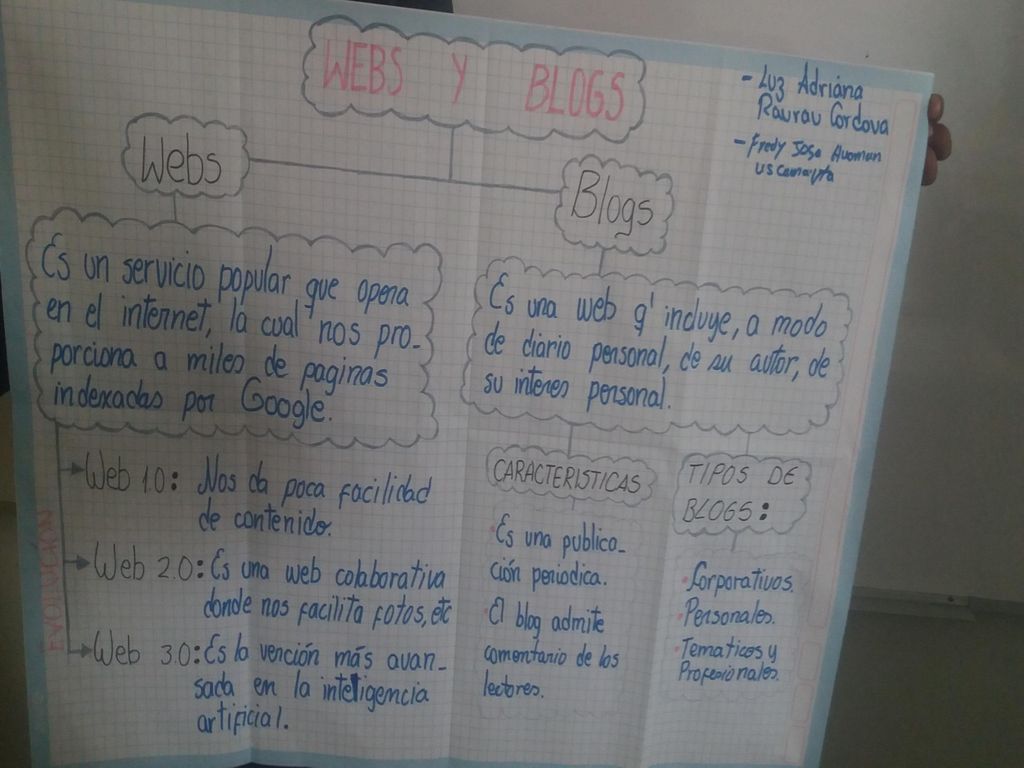 WEBS Y BLOGS
- Luz Adriana
Raurau Cordova
- Fredy Jose
Webs
Blogs
Es un servicio popular que opera
en el internet, la cual nos pro-
porciona a miles de paginas
indexadas por Google.
Es una web q' incluye, a modo
de diario personal, de su autor, de
su interes personal.
EVOLUCIÓN
Web 1.0: Nos da poca facilidad
de contenido.
Web 2.0: Es una web colaborativa
donde nos facilita fotos, etc
Web 3.0: Es la vención más avan-
sada en la inteligencia
artificial.
CARACTERISTICAS
Es una publica-
ción periodica.
El blog admite
comentario de los
lectores.
TIPOS DE
BLOGS:
Corporativos.
Personales.
Tematicos y
Profesionales.